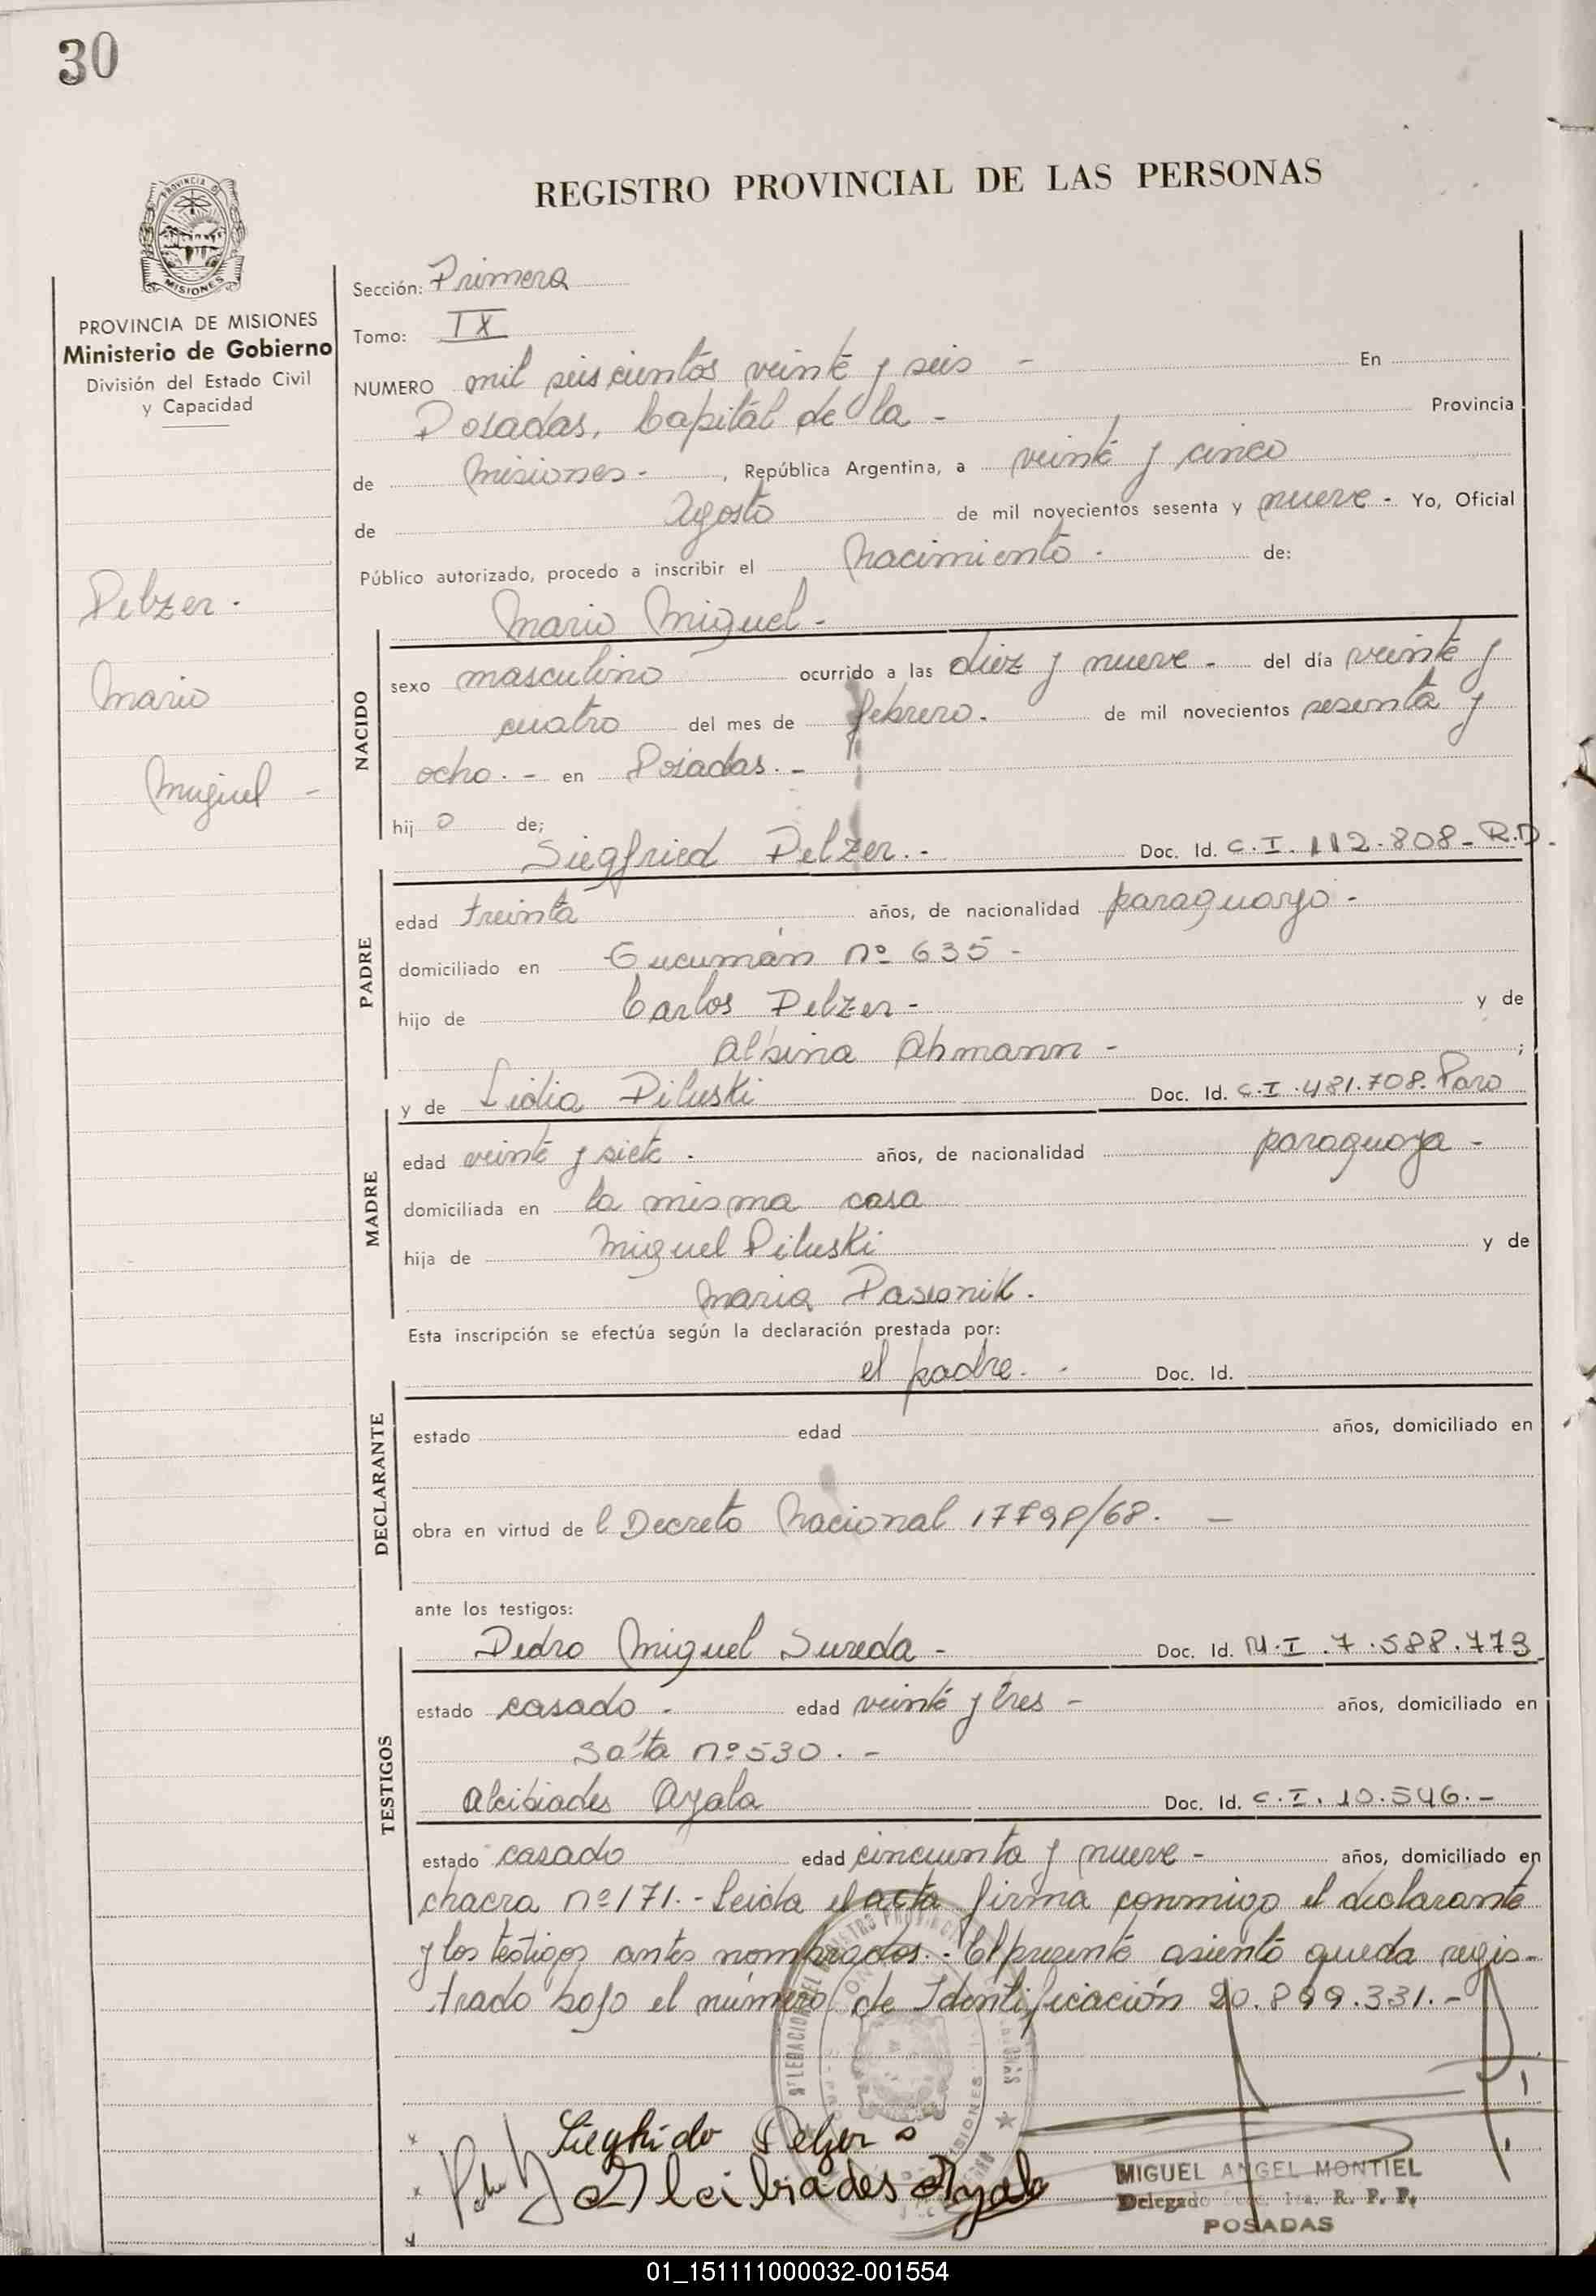 30
REGISTRO PROVINCIAL DE LAS PERSONAS
PROVINCIA DE MISIONES
Ministerio de Gobierno
División del Estado Civil
y Capacidad
Pelzer.
Mario
Miguel -
Sección: Primera
Tomo: IX
NUMERO mil seiscientos veinte y seis - En
Posadas, Capital de la - Provincia
de Misiones - , República Argentina, a veinte y cinco
de Agosto de mil novecientos sesenta y nueve - Yo, Oficial
Público autorizado, procedo a inscribir el Nacimiento - de:
Mario Miguel -
NACIDO
sexo masculino ocurrido a las diez y nueve - del día veinte y
cuatro del mes de febrero. de mil novecientos sesenta y
ocho. - en Posadas. -
hij o de;
Siegfried Pelzer. - Doc. Id. C.I. 112.808 - R.D.
PADRE
edad treinta años, de nacionalidad paraguayo -
domiciliado en Tucumán nº 635 -
hijo de Carlos Pelzer - y de
Albina Ahmann - ;
y de Lidia Piluski Doc. Id. C.I. 481.708. Paro
MADRE
edad veinte y siete . años, de nacionalidad paraguaya -
domiciliada en la misma casa
hija de Miguel Piluski y de
Maria Pasionik.
Esta inscripción se efectúa según la declaración prestada por:
el padre. - Doc. Id.
DECLARANTE
estado edad años, domiciliado en
obra en virtud de l Decreto Nacional /68. -
ante los testigos:
TESTIGOS
Pedro Miguel Sureda - Doc. Id. M.I. 7.588.773
estado casado - edad veinte y tres - años, domiciliado en
Salta nº 530. -
Alcibiades Ayala Doc. Id. C.I. 10.546. -
estado casado edad cincuenta y nueve - años, domiciliado en
chacra nº 171. - Leida el acta firma conmigo el declarante
y los testigos antes nombrados. - El presente asiento queda regis-
trado bajo el número de Identificación 20.899.331. -
Pelzer
Alcibiades Ayala
MIGUEL ANGEL MONTIEL
Delegado R. P. P.
POSADAS
01_151111000032-001554